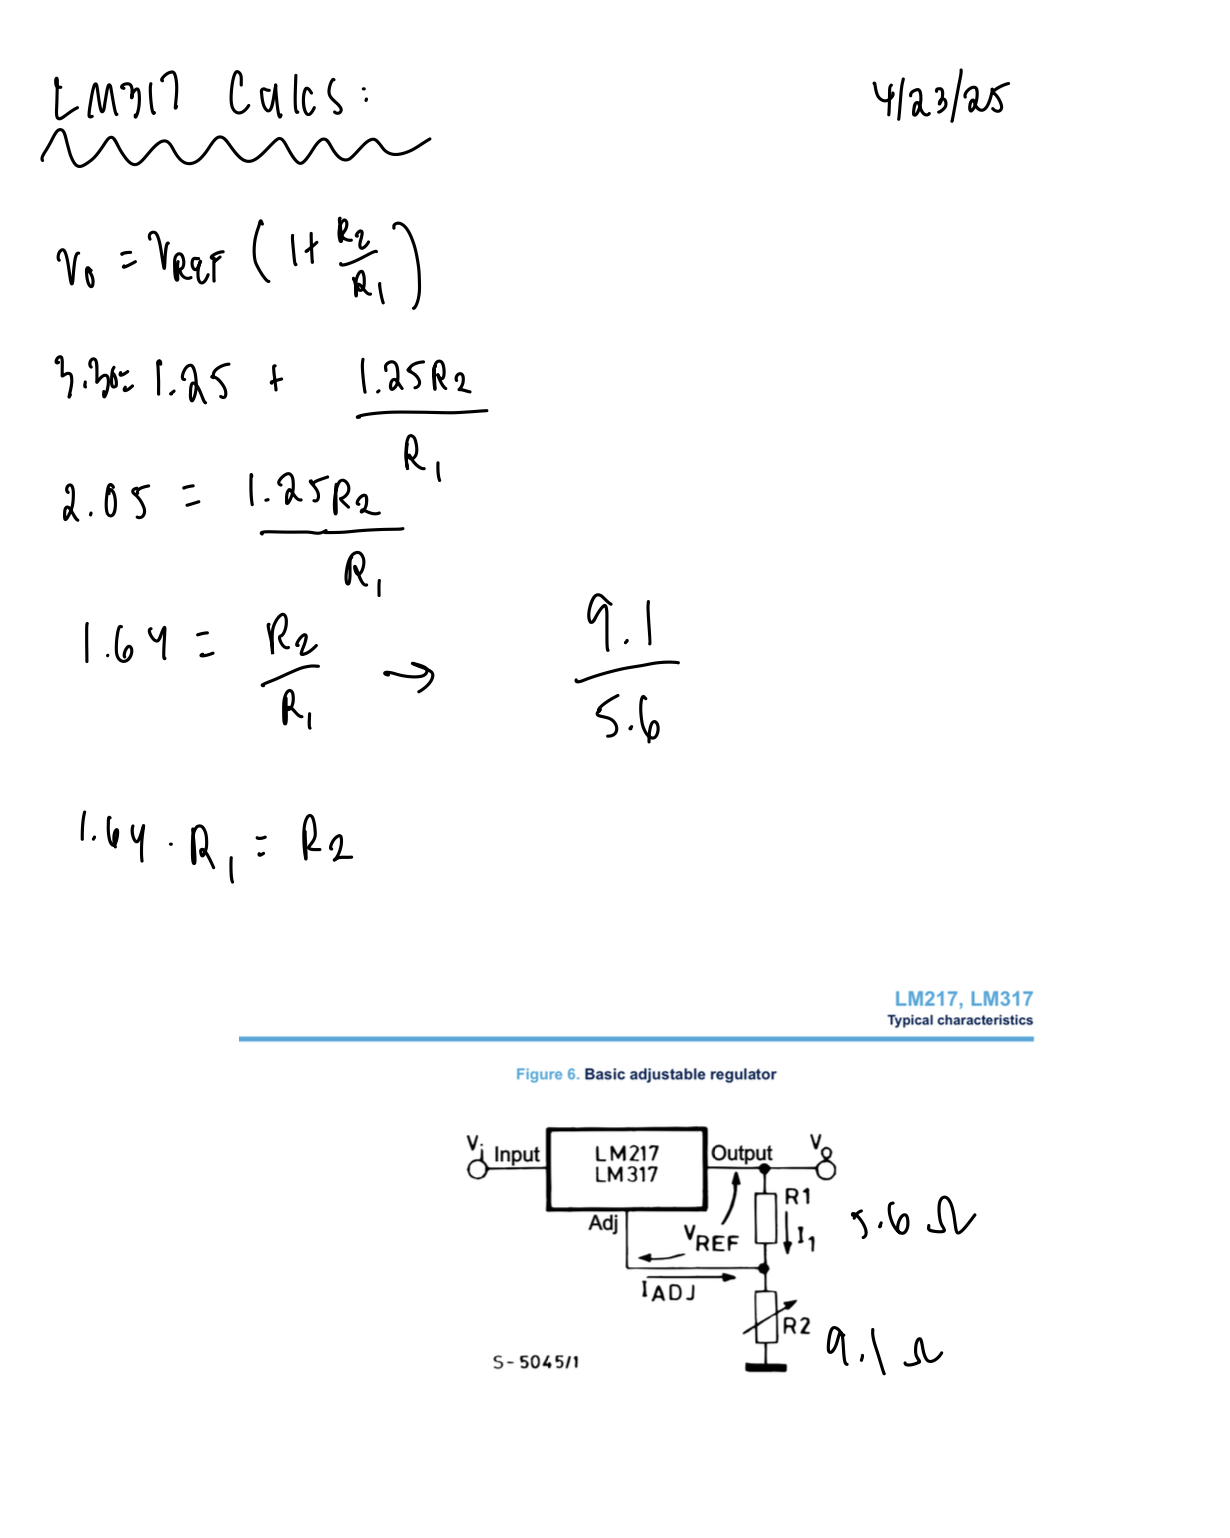 LM317 Calcs:
4/23/25
V₀ = V_REF (1 + R₂/R₁)
3.30 = 1.25 + 1.25R₂/R₁
2.05 = 1.25R₂/R₁
1.64 = R₂/R₁ → 9.1/5.6
1.64 · R₁ = R₂
LM217, LM317
Typical characteristics
Figure 6. Basic adjustable regulator
Vi Input
LM217
LM317
Output Vo
Adj
VREF
R1
I1
5.6 Ω
IADJ
R2
9.1 Ω
S-5045/1